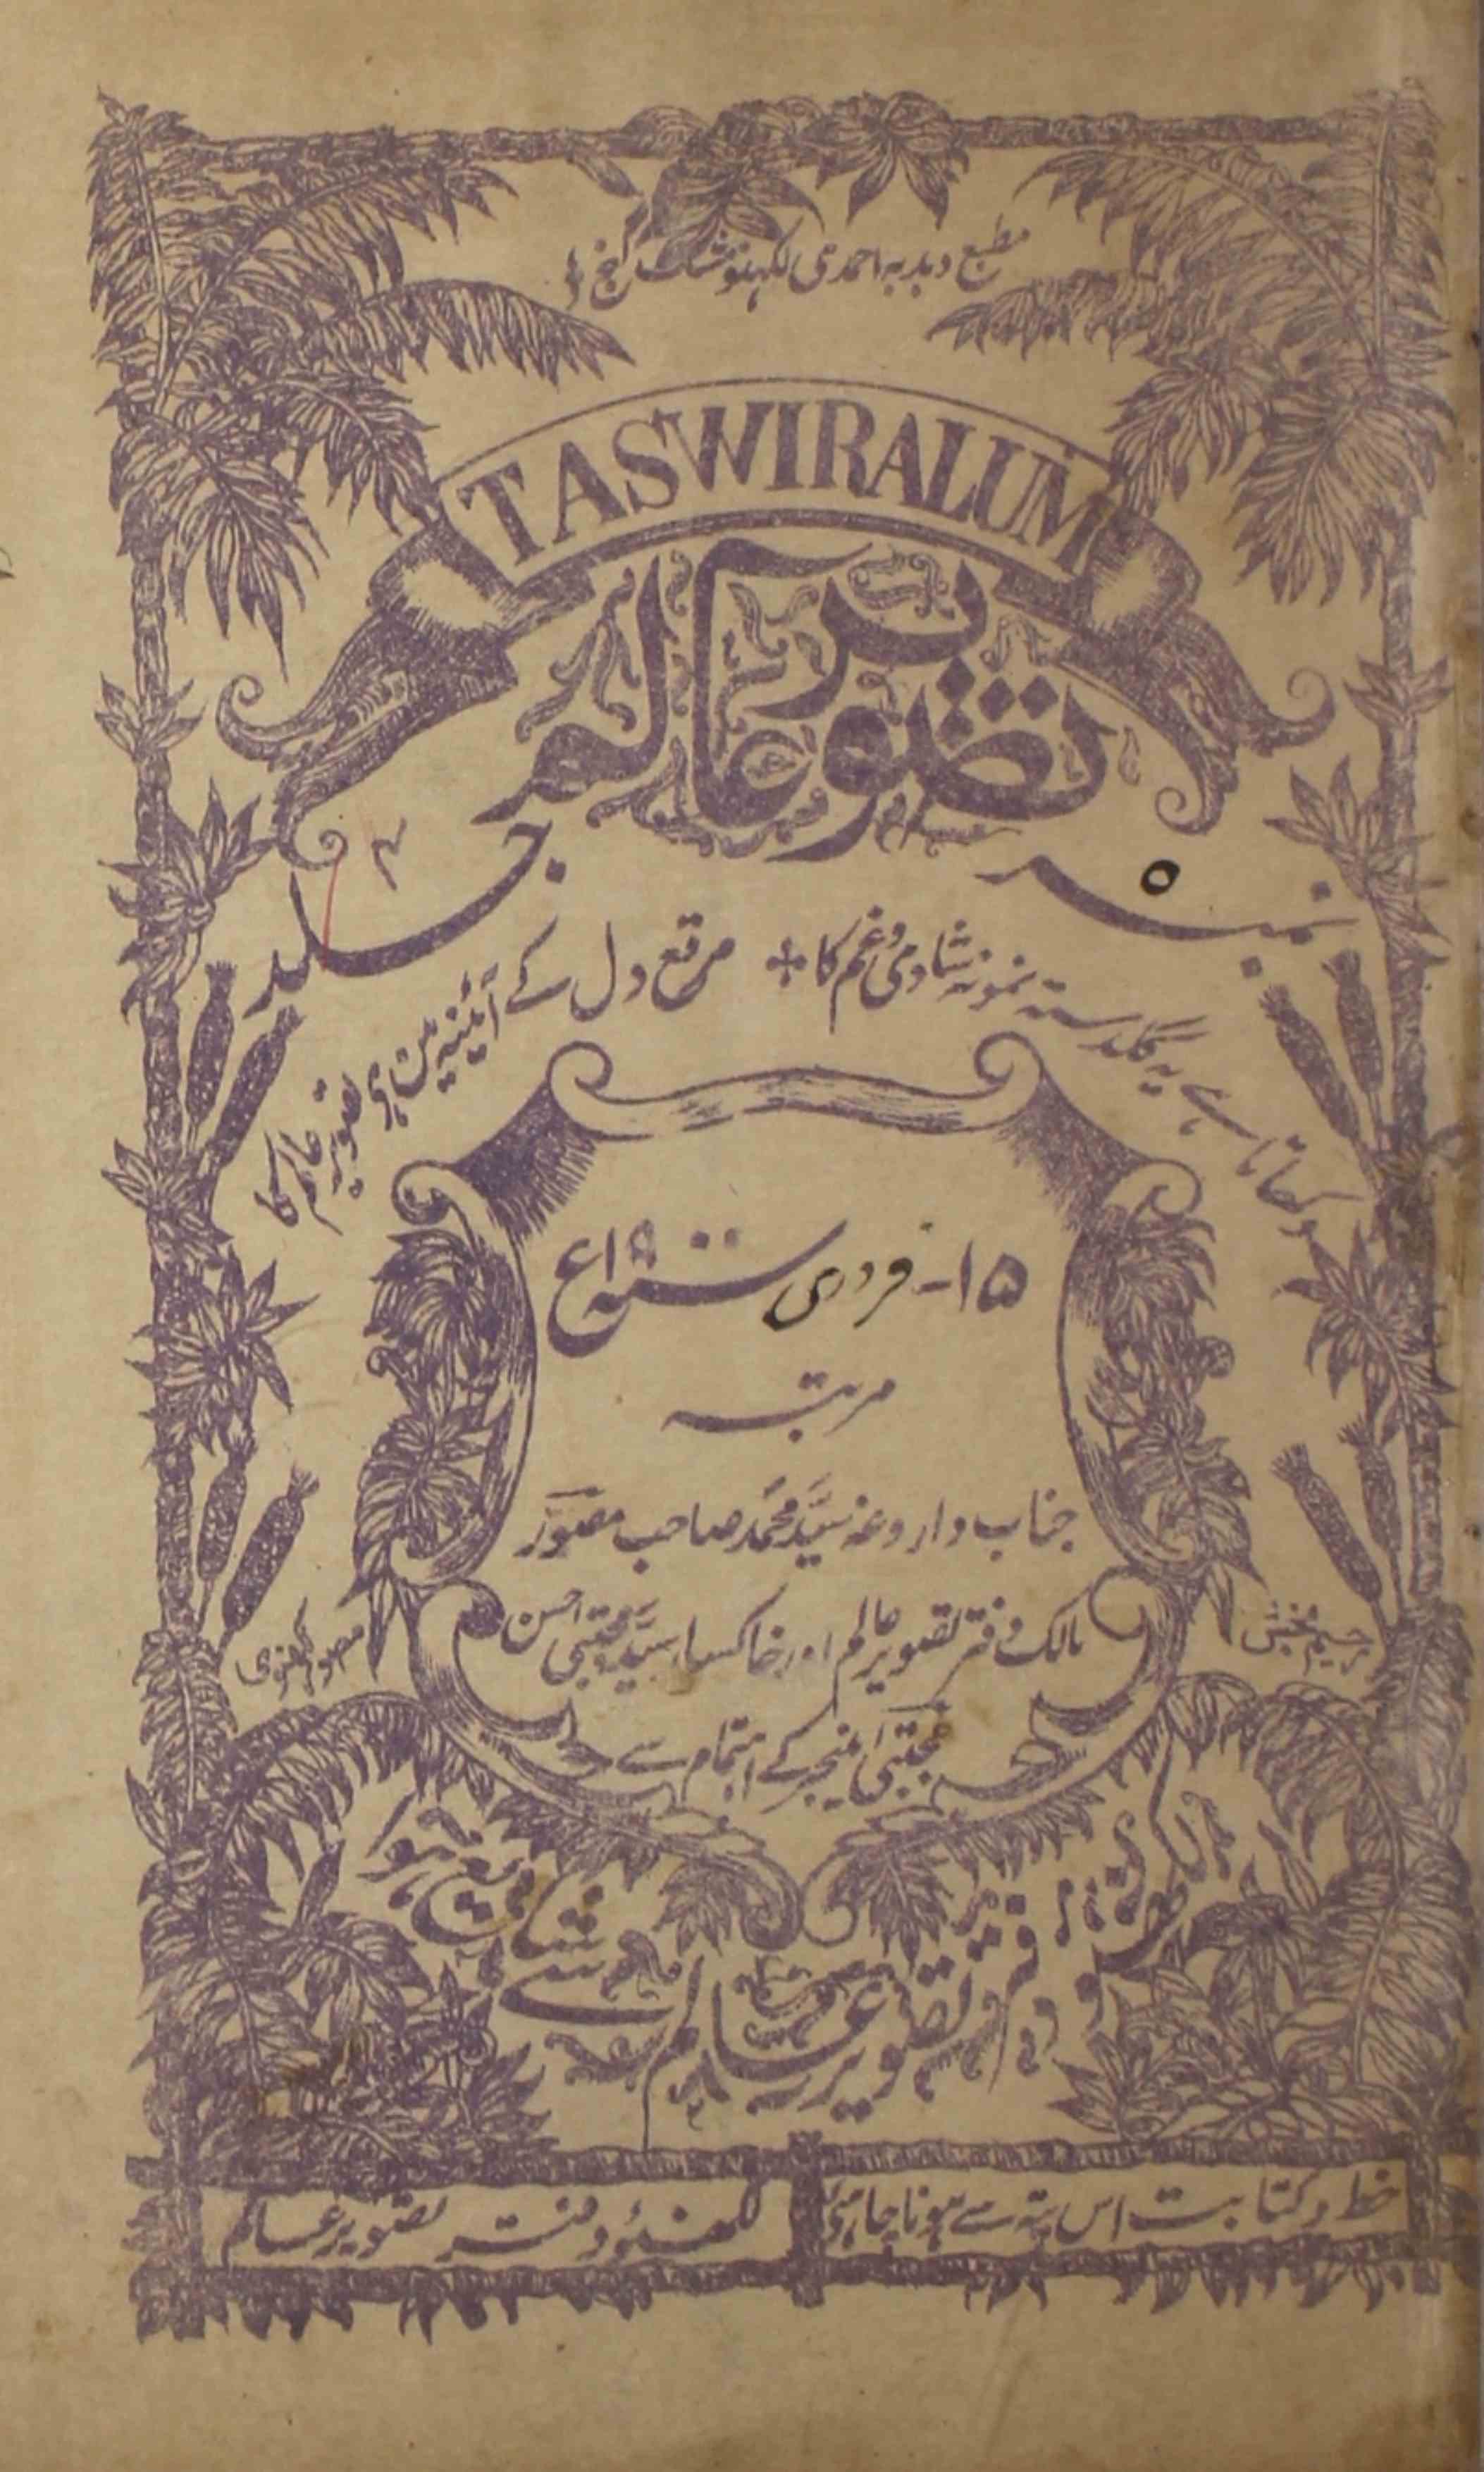 مطبع دبدبہ احمدی لکھنؤ مشک گنج
TASWIRALUM
تصویر عالم
نمبر ۵
جلد ۴
دکھاتا ہے یہ گلدستہ نمونہ شادی و غم کا * مرقع دل کے آئینہ میں ہی تصویر عالم کا
۱۵- فروری سنہ ۱۹۰۰ع
مرتبہ
جناب داروغہ سید محمد صاحب مصور
مالک دفتر تصویر عالم اور خاکسار سید مجتبی احسن
مجتبیٰ منیجر کے اہتمام سے
رحیم بخش
مصور لکھنوی
دفتر تصویر عالم سے شایع ہوا
خط و کتابت اس پتہ سے ہونا چاہئے
لکھنؤ دفتر تصویر عالم